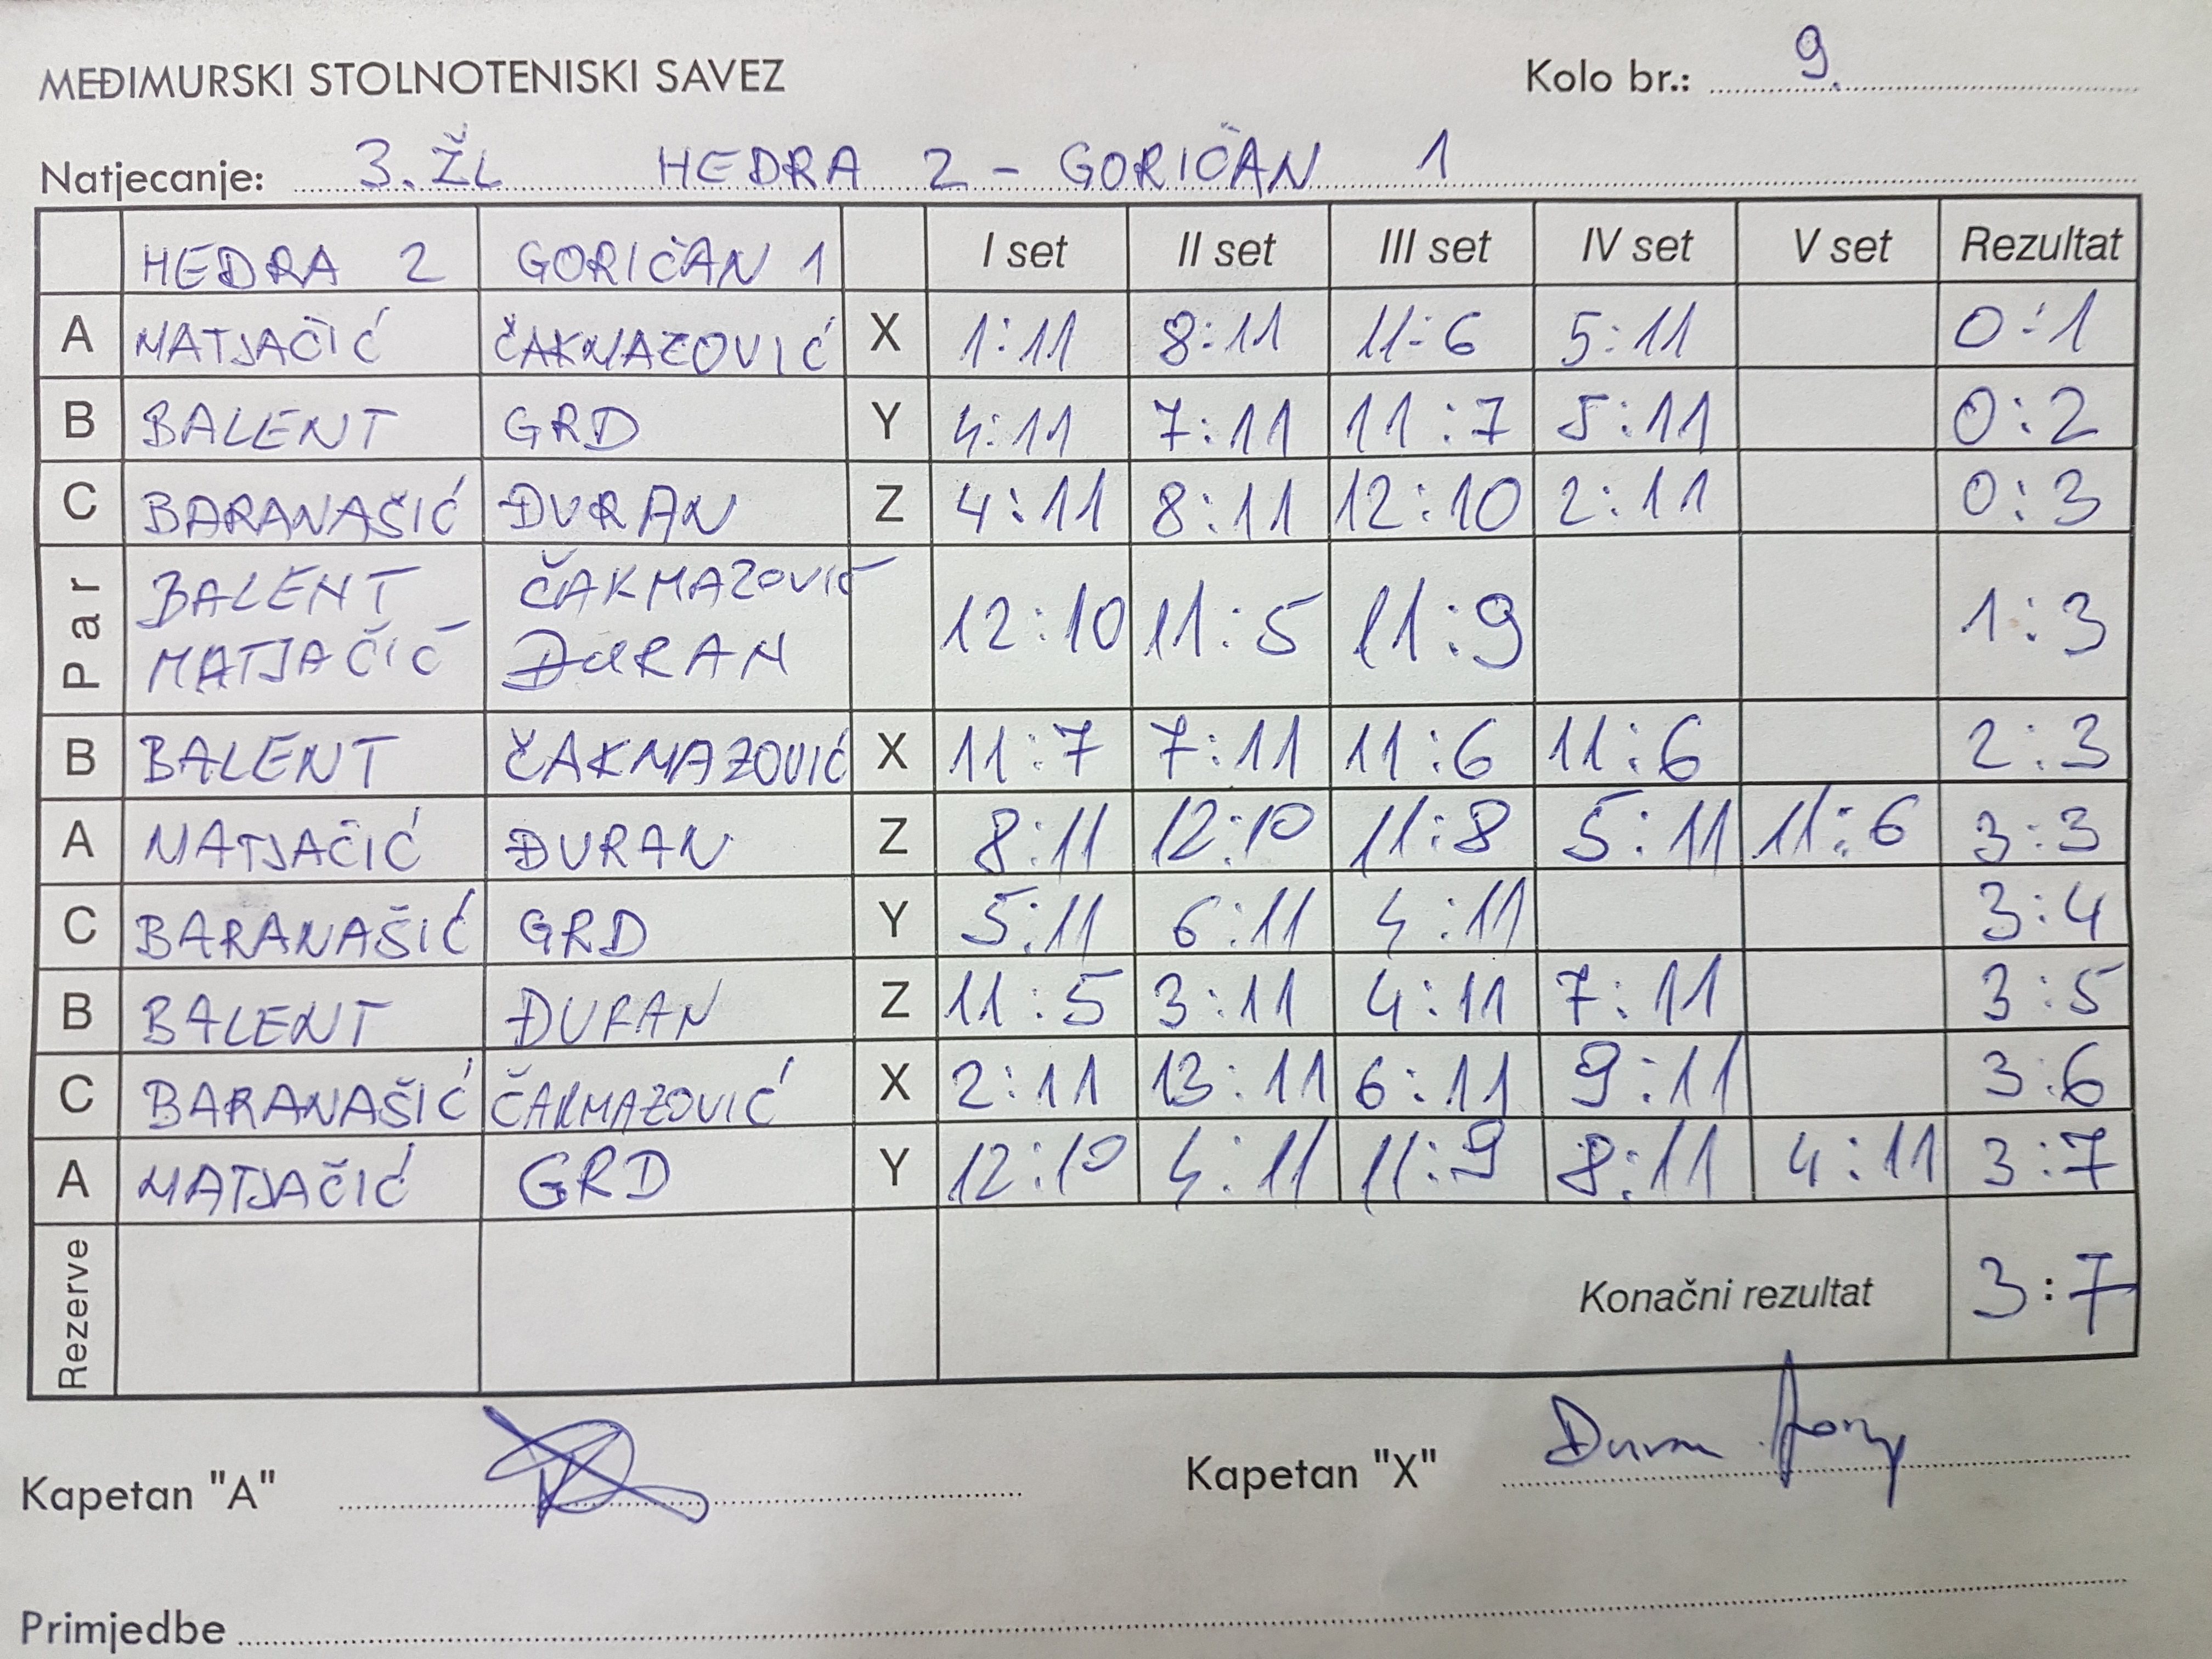 MEĐIMURSKI STOLNOTENISKI SAVEZ Kolo br.: 9.
Natjecanje: 3. ŽL HEDRA 2 - GORIČAN 1
HEDRA 2 GORIČAN 1 I set II set III set IV set V set Rezultat
A MATJAČIĆ ČAKMAZOVIĆ X 1:11 8:11 11:6 5:11 0:1
B BALENT GRD Y 4:11 7:11 11:7 5:11 0:2
C BARANAŠIĆ ĐURAN Z 4:11 8:11 12:10 2:11 0:3
Par BALENT MATJAČIĆ ČAKMAZOVIĆ ĐURAN 12:10 11:5 11:9 1:3
B BALENT ČAKMAZOVIĆ X 11:7 7:11 11:6 11:6 2:3
A MATJAČIĆ ĐURAN Z 8:11 12:10 11:8 5:11 11:6 3:3
C BARANAŠIĆ GRD Y 5:11 6:11 4:11 3:4
B BALENT ĐURAN Z 11:5 3:11 4:11 7:11 3:5
C BARANAŠIĆ ČAKMAZOVIĆ X 2:11 13:11 6:11 9:11 3:6
A MATJAČIĆ GRD Y 12:10 4:11 11:9 8:11 4:11 3:7
Rezerve Konačni rezultat 3:7
Kapetan "A" Kapetan "X" Đuran
Primjedbe